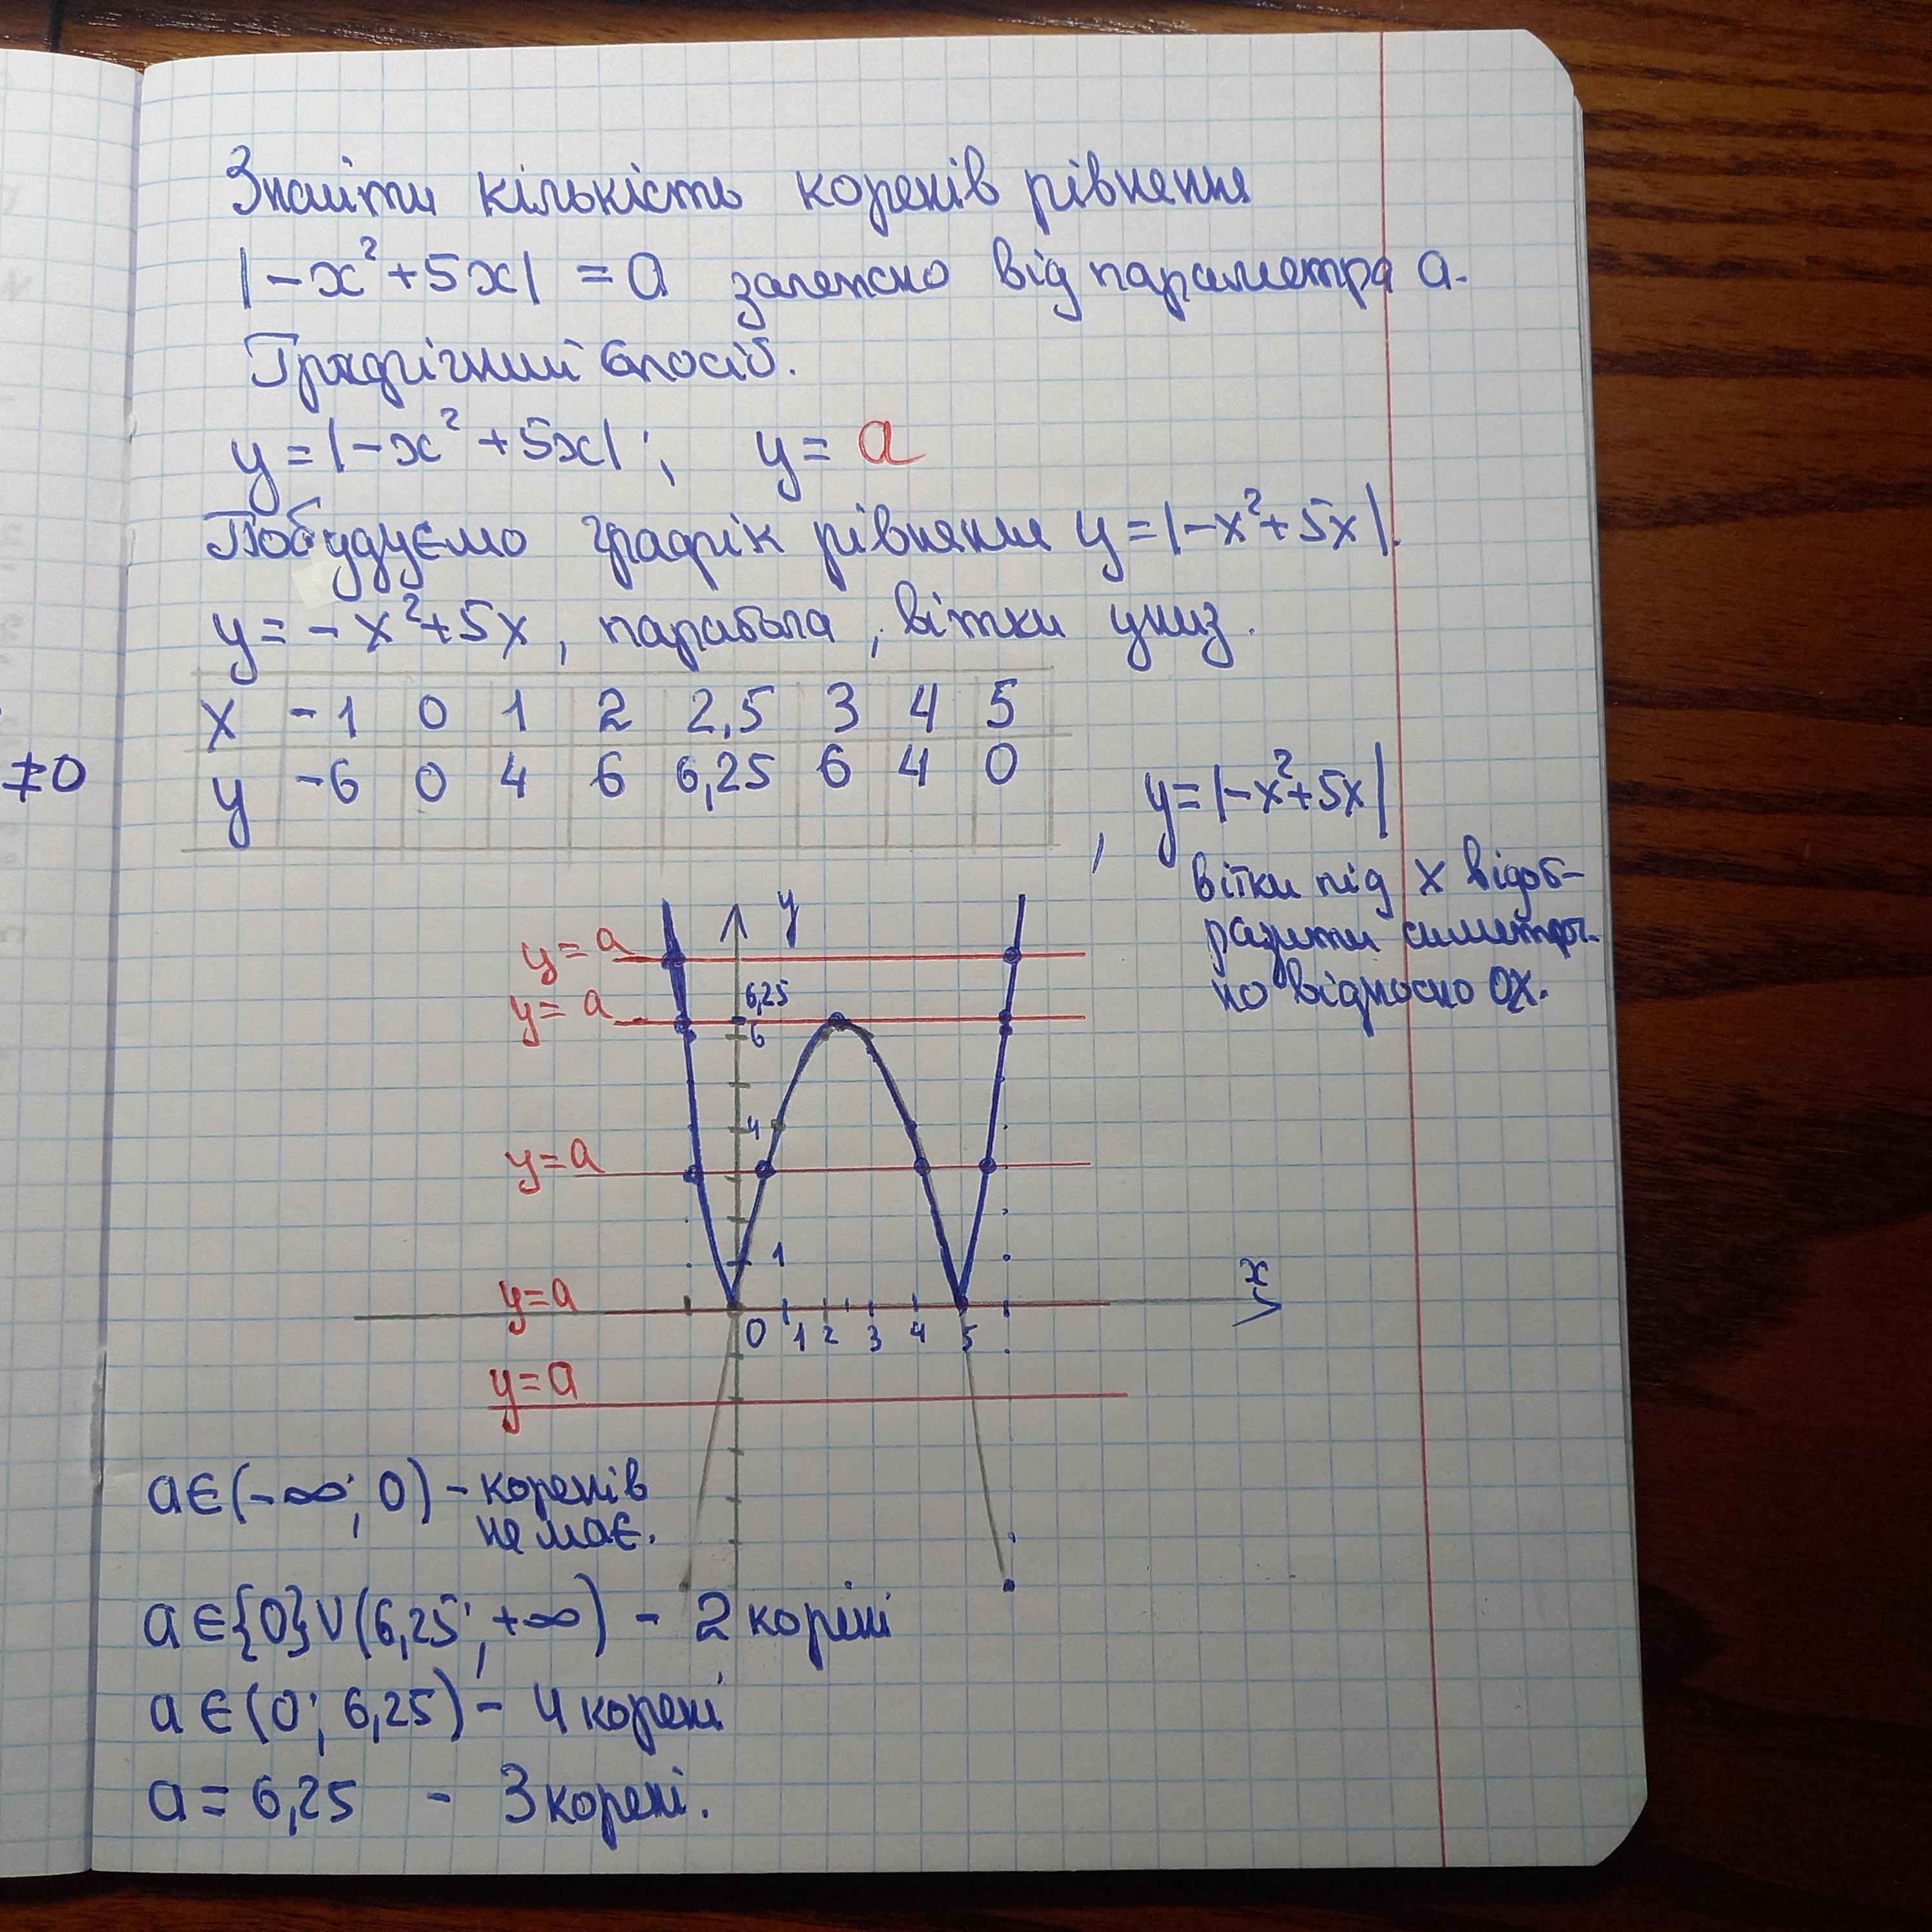 Знайти кількість коренів рівняння
|-x²+5x| = a залежно від параметра a.
Графічний спосіб.
y=|-x²+5x|; y= a
Побудуємо графік рівняння y=|-x²+5x|.
y=-x²+5x, парабола, вітки униз.
x -1 0 1 2 2,5 3 4 5
y -6 0 4 6 6,25 6 4 0
≠0
, y=|-x²+5x|
вітки під x відоб-
разити симетрич-
но відносно OX.
y
y=a
6,25
y=a
6
4
y=a
1
x
y=a
0 1 2 3 4 5
y=a
a∈(-∞; 0) - коренів
немає.
a∈{0}∪(6,25; +∞) - 2 корені
a∈(0; 6,25) - 4 корені
a = 6,25 - 3 корені.